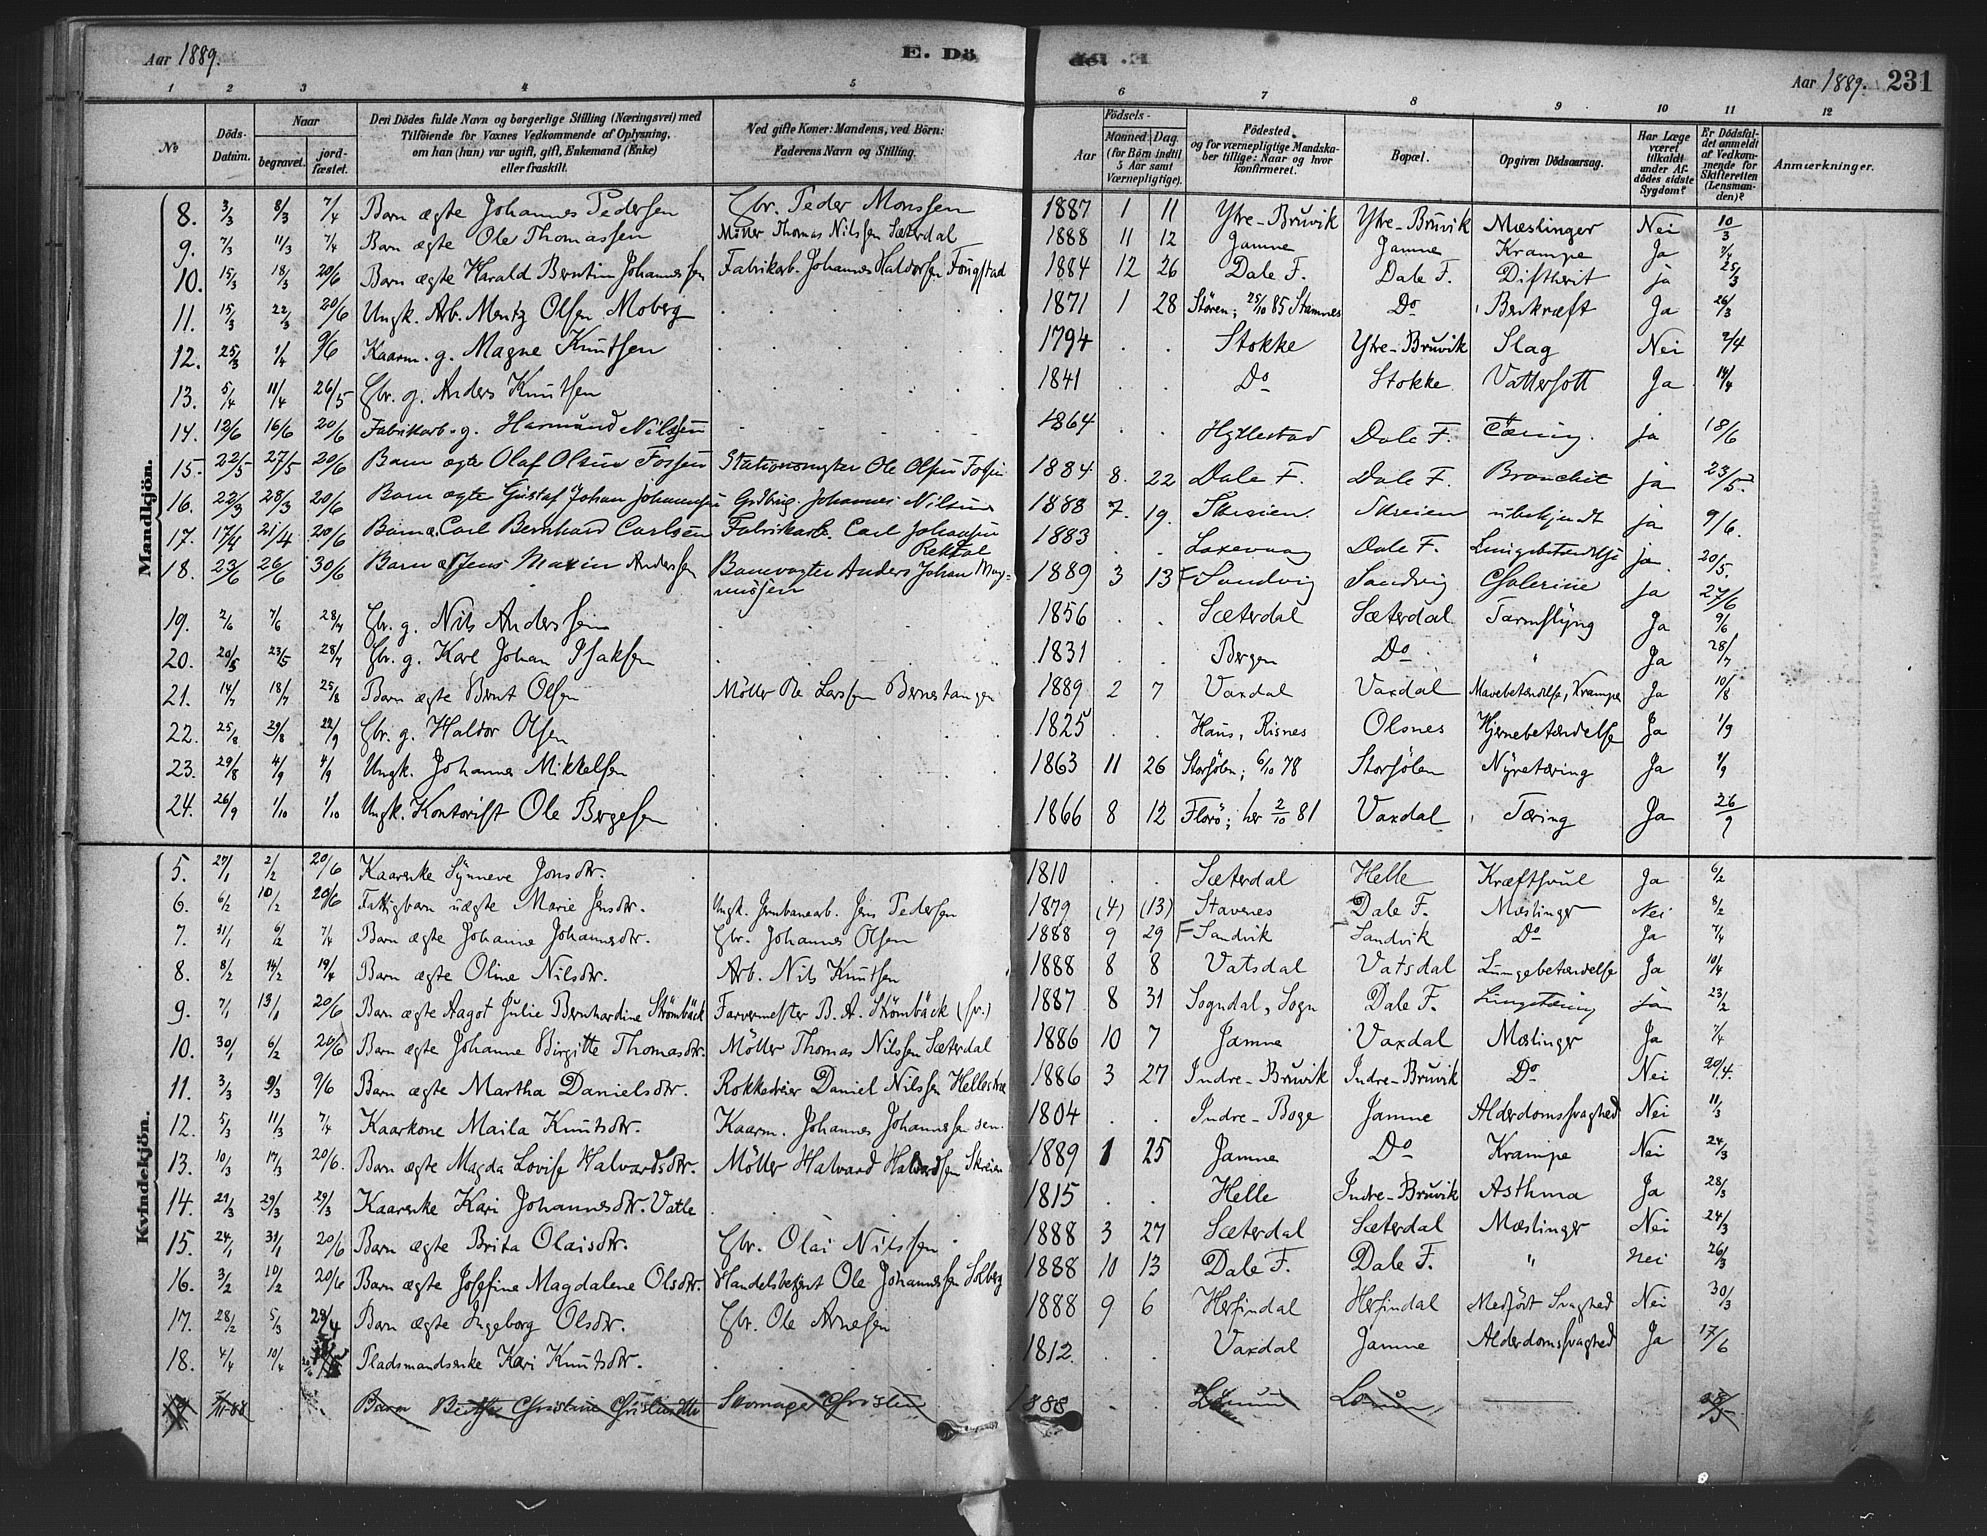 Aar 1889. E. Dö
de. E. Aar 1889. 231
1 2 3 4 5 6 7 8 9 10 11 12
No Döds-Datum. Naar begravet. jordfæstet. Den Dödes fulde Navn og borgerlige Stilling (Næringsvei) med Tilföiende for Voxnes Vedkommende af Oplysning, om han (hun) var ugift, gift, Enkemand (Enke) eller fraskilt. Ved gifte Koner: Mandens, ved Börn: Faderens Navn og Stilling. Födsels- Aar Maaned Dag. (for Börn indtil 5 Aar samt Værnepligtige). Födested og for værnepligtige Mandskaber tillige: Naar og hvor konfirmeret. Bopæl. Opgiven Dödsaarsag. Har Læge været tilkaldt under Afdödes sidste Sygdom? Er Dödsfaldet anmeldt af Vedkommende for Skifteretten (Lensmanden)? Anmærkninger.
Mandkjön.
8. 3/3 8/3 7/4 Barn ægte Johannes Pedersen Gbr. Peder Monssen 1887 1 11 Ytre-Bruvik Ytre-Bruvik Mæslinger Nei 10/3
9. 7/3 11/3 7/4 Barn ægte Ole Thomassen Möller Thomas Nilssen Sæterdal 1888 11 12 Jamne Jamne Krampe Ja 7/4
10. 15/3 18/3 20/6 Barn ægte Harald Berntin Johannessen Fabrikarb. Johannes Haldorsen Fougstad 1884 12 26 Dale F. Dale F. Diftherit ja 25/3
11. 15/3 22/3 20/6 Ungk. Arb. Mentz Olsen Moberg 1871 1 28 Stören; 25/10 85 Stamnes Do Benkræft Ja 26/3
12. 25/3 1/4 9/6 Kaarm. g. Magne Knutsen 1794 Stokke Ytre-Bruvik Slag Nei 2/4
13. 5/4 11/4 26/5 Gbr. g. Anders Knutsen 1841 Do Stokke Vattersott Ja 14/4
14. 12/6 16/6 20/6 Fabrikarb. g. Harmund Nilssen 1864 Hyllestad Dale F. Tæring. ja 18/6
15. 22/5 27/5 20/6 Barn ægte Olaf Olsen Fossen Stationsmgter Ole Olsen 1884 8. 22 Dale F. Dale F. Bronchit ja 23/5
16. 22/3 28/3 20/6 Barn ægte Gustaf Johan Johannsen Johannes Nilsen 1888 7. 19. Skreien. Skreien ubekjendt ja 9/6.
17. 17/4 21/4 20/6 Barn æ. Carl Bernhard Carlsen Fabrikarb. Carl Johansen Rektal 1883 Laxevaag Dale F. Lungebetændelse ja. 20/5.
18. 23/6 26/6 30/6 Barn æ Jens Maxin Anderssen Banevogter Anders Johan Magnussen 1889 3 13 F Sandvig Sandvig Cholerine ja 27/6
19. 2/6 7/6 28/7 Gbr. g. Nils Anderssen 1856 Sæterdal Sæterdal Tarmslyng Ja 9/6
20. 20/5 23/5 28/7 Gbr. g. Karl Johan Isaksen 1831 Bergen Do " Ja 28/7
21. 14/7 18/7 25/8 Barn ægte Bernt Olsen Möller Ole Larssen Bernestangen 1889 2 7 Vaxdal Vaxdal Mavebetændelse, Krampe Ja 10/8
22. 25/8 29/8 22/9 Gbr. g. Haldor Olsen 1825 Haus, Risnes Olsnes Hjernebetændelse Ja 1/9
23. 29/8 4/9 4/9 Ungk. Johannes Mikkelsen 1863 11 26 Storsölen; 6/10 78 Storsölen Nyretæring Ja 1/9
24. 26/9 1/10 1/10 Ungk. Kontorist Ole Bergesen 1866 8 12 Florö; her 2/10 81 Vaxdal Tæring Ja 26/9
Kvindekjön.
5. 27/1 2/2 20/6 Kaarenke Synneve Jonsdtr. 1810 Sæterdal Helle Kræftsvul Ja 6/2
6. 6/2 10/2 20/6 Fattigbarn uægte Marie Jensdtr. Ungk. Jernbanearb. Jens Pedersen 1879 (4) (13) Stavenes Dale F. Mæslinger Nei 8/2
7. 31/1 6/2 7/4 Barn ægte Johanne Johannesdtr. Gbr. Johannes Olsen 1888 9 29 F Sandvik Sandvik Do Ja 7/4
8. 8/2 14/2 19/4 Barn ægte Oline Nilsdtr. Arb. Nils Knutsen 1888 8 8 Vatsdal Vatsdal Lungebetændelse Ja 10/4
9. 7/1 13/1 20/6 Barn ægte Aagot Julie Bernhardine Strömbäck Farvermester B. A. Strömbäck (fr.) 1887 8 31 Sogndal, Sogn Dale F. Lungetæring Ja 23/2
10. 30/1 6/2 20/6 Barn ægte Johanne Birgitte Thomasdtr. Möller Thomas Nilssen Sæterdal 1886 10 7 Jamne Vaxdal Mæslinger Ja 7/4
11. 3/3 9/3 9/6 Barn ægte Martha Danielsdtr. Rokkedreier Daniel Nilssen Hellestræ 1886 3 27 Indre-Bruvik Indre-Bruvik Do Nei 20/4.
12. 5/3 11/3 7/4 Kaarkone Maila Knutsdtr. Kaarm. Johannes Johannessen sen. 1804 Indre-Boge Jamne Alderdomssvaghed Nei 11/3
13. 10/3 17/3 20/6. Barn ægte Magda Lovise Halvardsdtr. Möller Halvard Halvardsen Skreien 1889 1 25 Jamne Do Krampe Nei 24/3
14. 21/3 29/3 29/3 Kaarenke Kari Johannesdtr. Vatle 1815 Helle Indre-Bruvik Asthma Ja 28/3
15. 24/1 31/1 20/6 Barn ægte Brita Olaisdtr. Gbr. Olai Nilssen 1888 3 27 Sæterdal Sæterdal Mæslinger Nei 24/3
16. 3/2 10/2 20/6 Barn ægte Josefine Magdalene Olsdtr. Handelsbetjent Ole Johannessen Solberg 1888 10 13 Dale F. Dale F. " nei 26/3
17. 28/2 5/3 28/4 Barn ægte Ingeborg Olsdtr. Gbr. Ole Arnesen 1888 9 6 Herfindal Herfindal Medfört Svaghed Nei 30/3
18. 4/4 10/4 Pladsmandsenke Kari Knutsdtr. 1812. Vaxdal Jamne Alderdomssvaghed Ja 17/6
Barn Berthe Christine Skomager Christen 1888